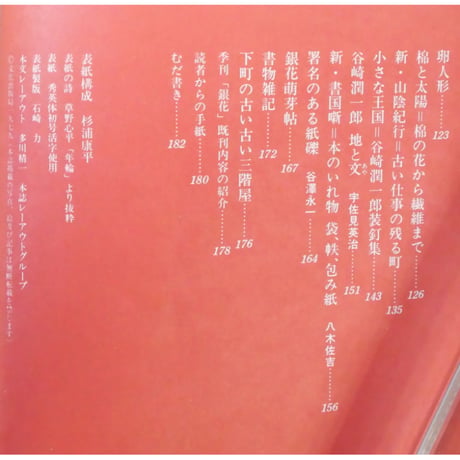 卵人形………123
棉と太陽＝棉の花から繊維まで……126
新・山陰紀行＝古い仕事の残る町……135
小さな王国＝谷崎潤一郎装釘集……143
谷崎潤一郎 地と文 宇佐見英治……151
新・書国噺＝本のいれ物 袋、帙、包み紙 八木佐吉……156
署名のある紙礫 谷澤永一……164
銀花萌芽帖……167
書物雑記……172
下町の古い古い三階屋……176
季刊「銀花」既刊内容の紹介……178
読者からの手紙……180
むだ書き……182
表紙構成 杉浦康平
表紙の詩 草野心平「年輪」より抜粋
本文 秀英体初号活字使用
表紙製版 石崎 力
本文レーアウト 多川精一 本誌レーアウトグループ
©文化出版局 一九七九 本誌掲載の写真、絵及び記事は無断転載を禁じます